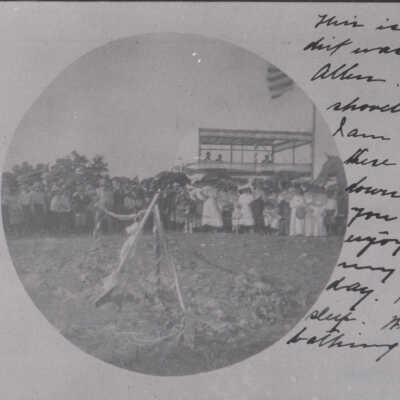 This is
dirt was
Allen.
shovel
I am
there
down
you
enjoy
my
day.
sleep.
bathing